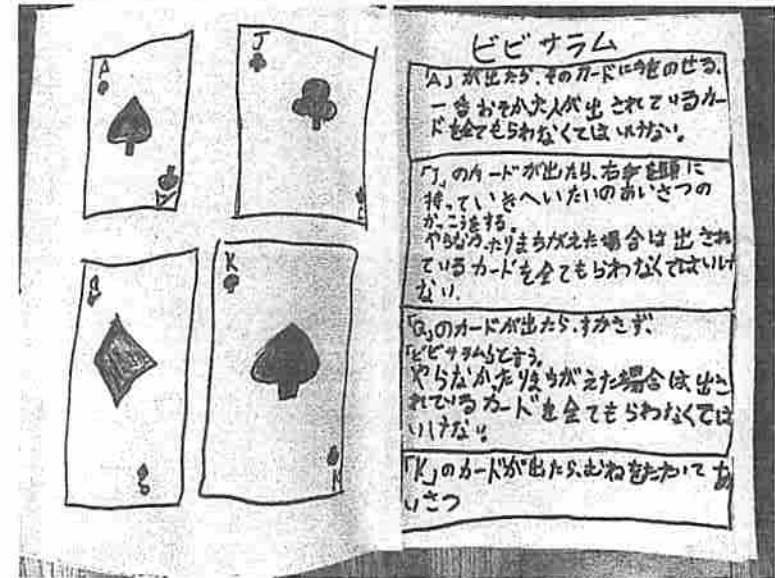 A
J
Q
K
ビビサラム
「A」が出たら、そのカードに手をのせる。
一番おそかった人が出されているカー
ドを全てもらわなくてはいけない。
「J」のカードが出たら、右手を頭に
持っていきへいたいのあいさつの
かっこうをする。
やらなかったりまちがえた場合は出され
ているカードを全てもらわなくてはいけ
ない。
「Q」のカードが出たら、すかさず、
「ビビサラム」と言う。
やらなかったりまちがえた場合は、出さ
れているカードを全てもらわなくては
いけない。
「K」のカードが出たら、むねをたたいてあ
いさつ